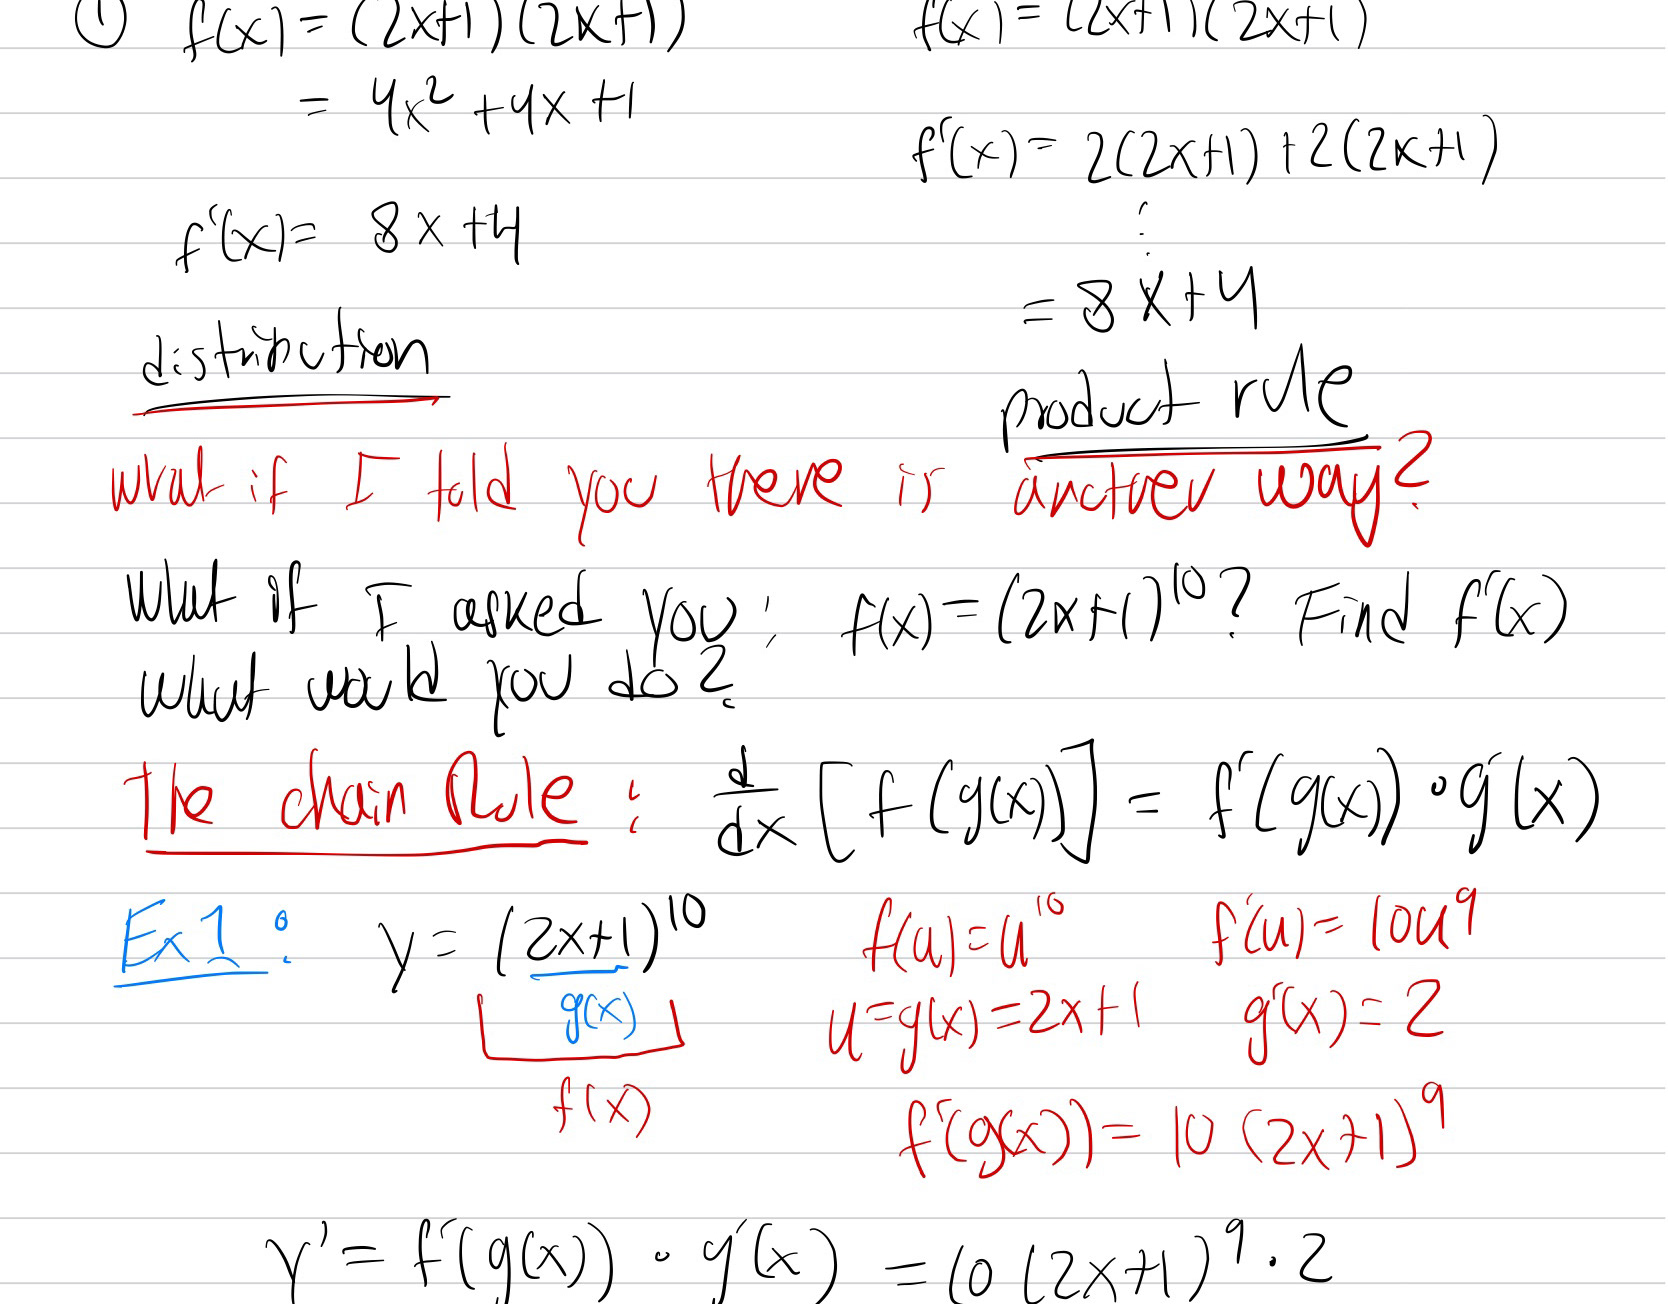 ① f(x) = (2x+1)(2x+1)
= 4x² + 4x + 1
f'(x) = 8x + 4
distribution
f(x) = (2x+1)(2x+1)
f'(x) = 2(2x+1) + 2(2x+1)
⋮
= 8x + 4
product rule
what if I told you there is another way?
What if I asked you: f(x) = (2x+1)¹⁰? Find f'(x)
what would you do?
The chain Rule : d/dx [f(g(x))] = f'(g(x)) · g'(x)
Ex 1 : y = (2x+1)¹⁰
g(x)
f(x)
f(u) = u¹⁰ f'(u) = 10u⁹
u = g(x) = 2x+1 g'(x) = 2
f'(g(x)) = 10 (2x+1)⁹
y' = f'(g(x)) · g'(x) = 10 (2x+1)⁹ · 2